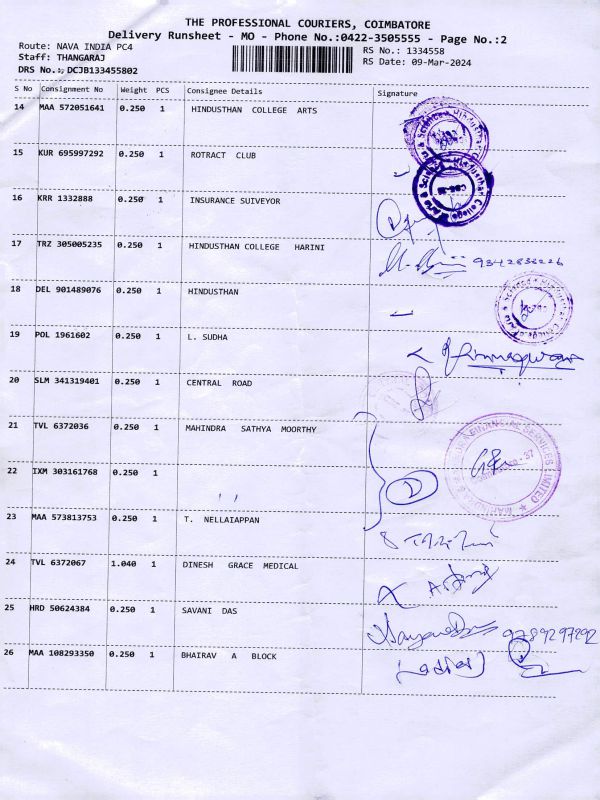 THE PROFESSIONAL COURIERS, COIMBATORE
Delivery Runsheet - MO - Phone No.:0422-3505555 - Page No.:2
Route: NAVA INDIA PC4 RS No.: 1334558
Staff: THANGARAJ RS Date: 09-Mar-2024
DRS No.: DCJB133455802
S No Consignment No Weight PCS Consignee Details Signature
14 MAA 572051641 0.250 1 HINDUSTHAN COLLEGE ARTS
15 KUR 695997292 0.250 1 ROTRACT CLUB
16 KRR 1332888 0.250 1 INSURANCE SUIVEYOR
17 TRZ 305005235 0.250 1 HINDUSTHAN COLLEGE HARINI
18 DEL 901489076 0.250 1 HINDUSTHAN
19 POL 1961602 0.250 1 L. SUDHA
20 SLM 341319401 0.250 1 CENTRAL ROAD
21 TVL 6372036 0.250 1 MAHINDRA SATHYA MOORTHY
22 IXM 303161768 0.250 1 , ,
23 MAA 573813753 0.250 1 T. NELLAIAPPAN
24 TVL 6372067 1.040 1 DINESH GRACE MEDICAL
25 HRD 50624384 0.250 1 SAVANI DAS 9789297292
26 MAA 108293350 0.250 1 BHAIRAV A BLOCK